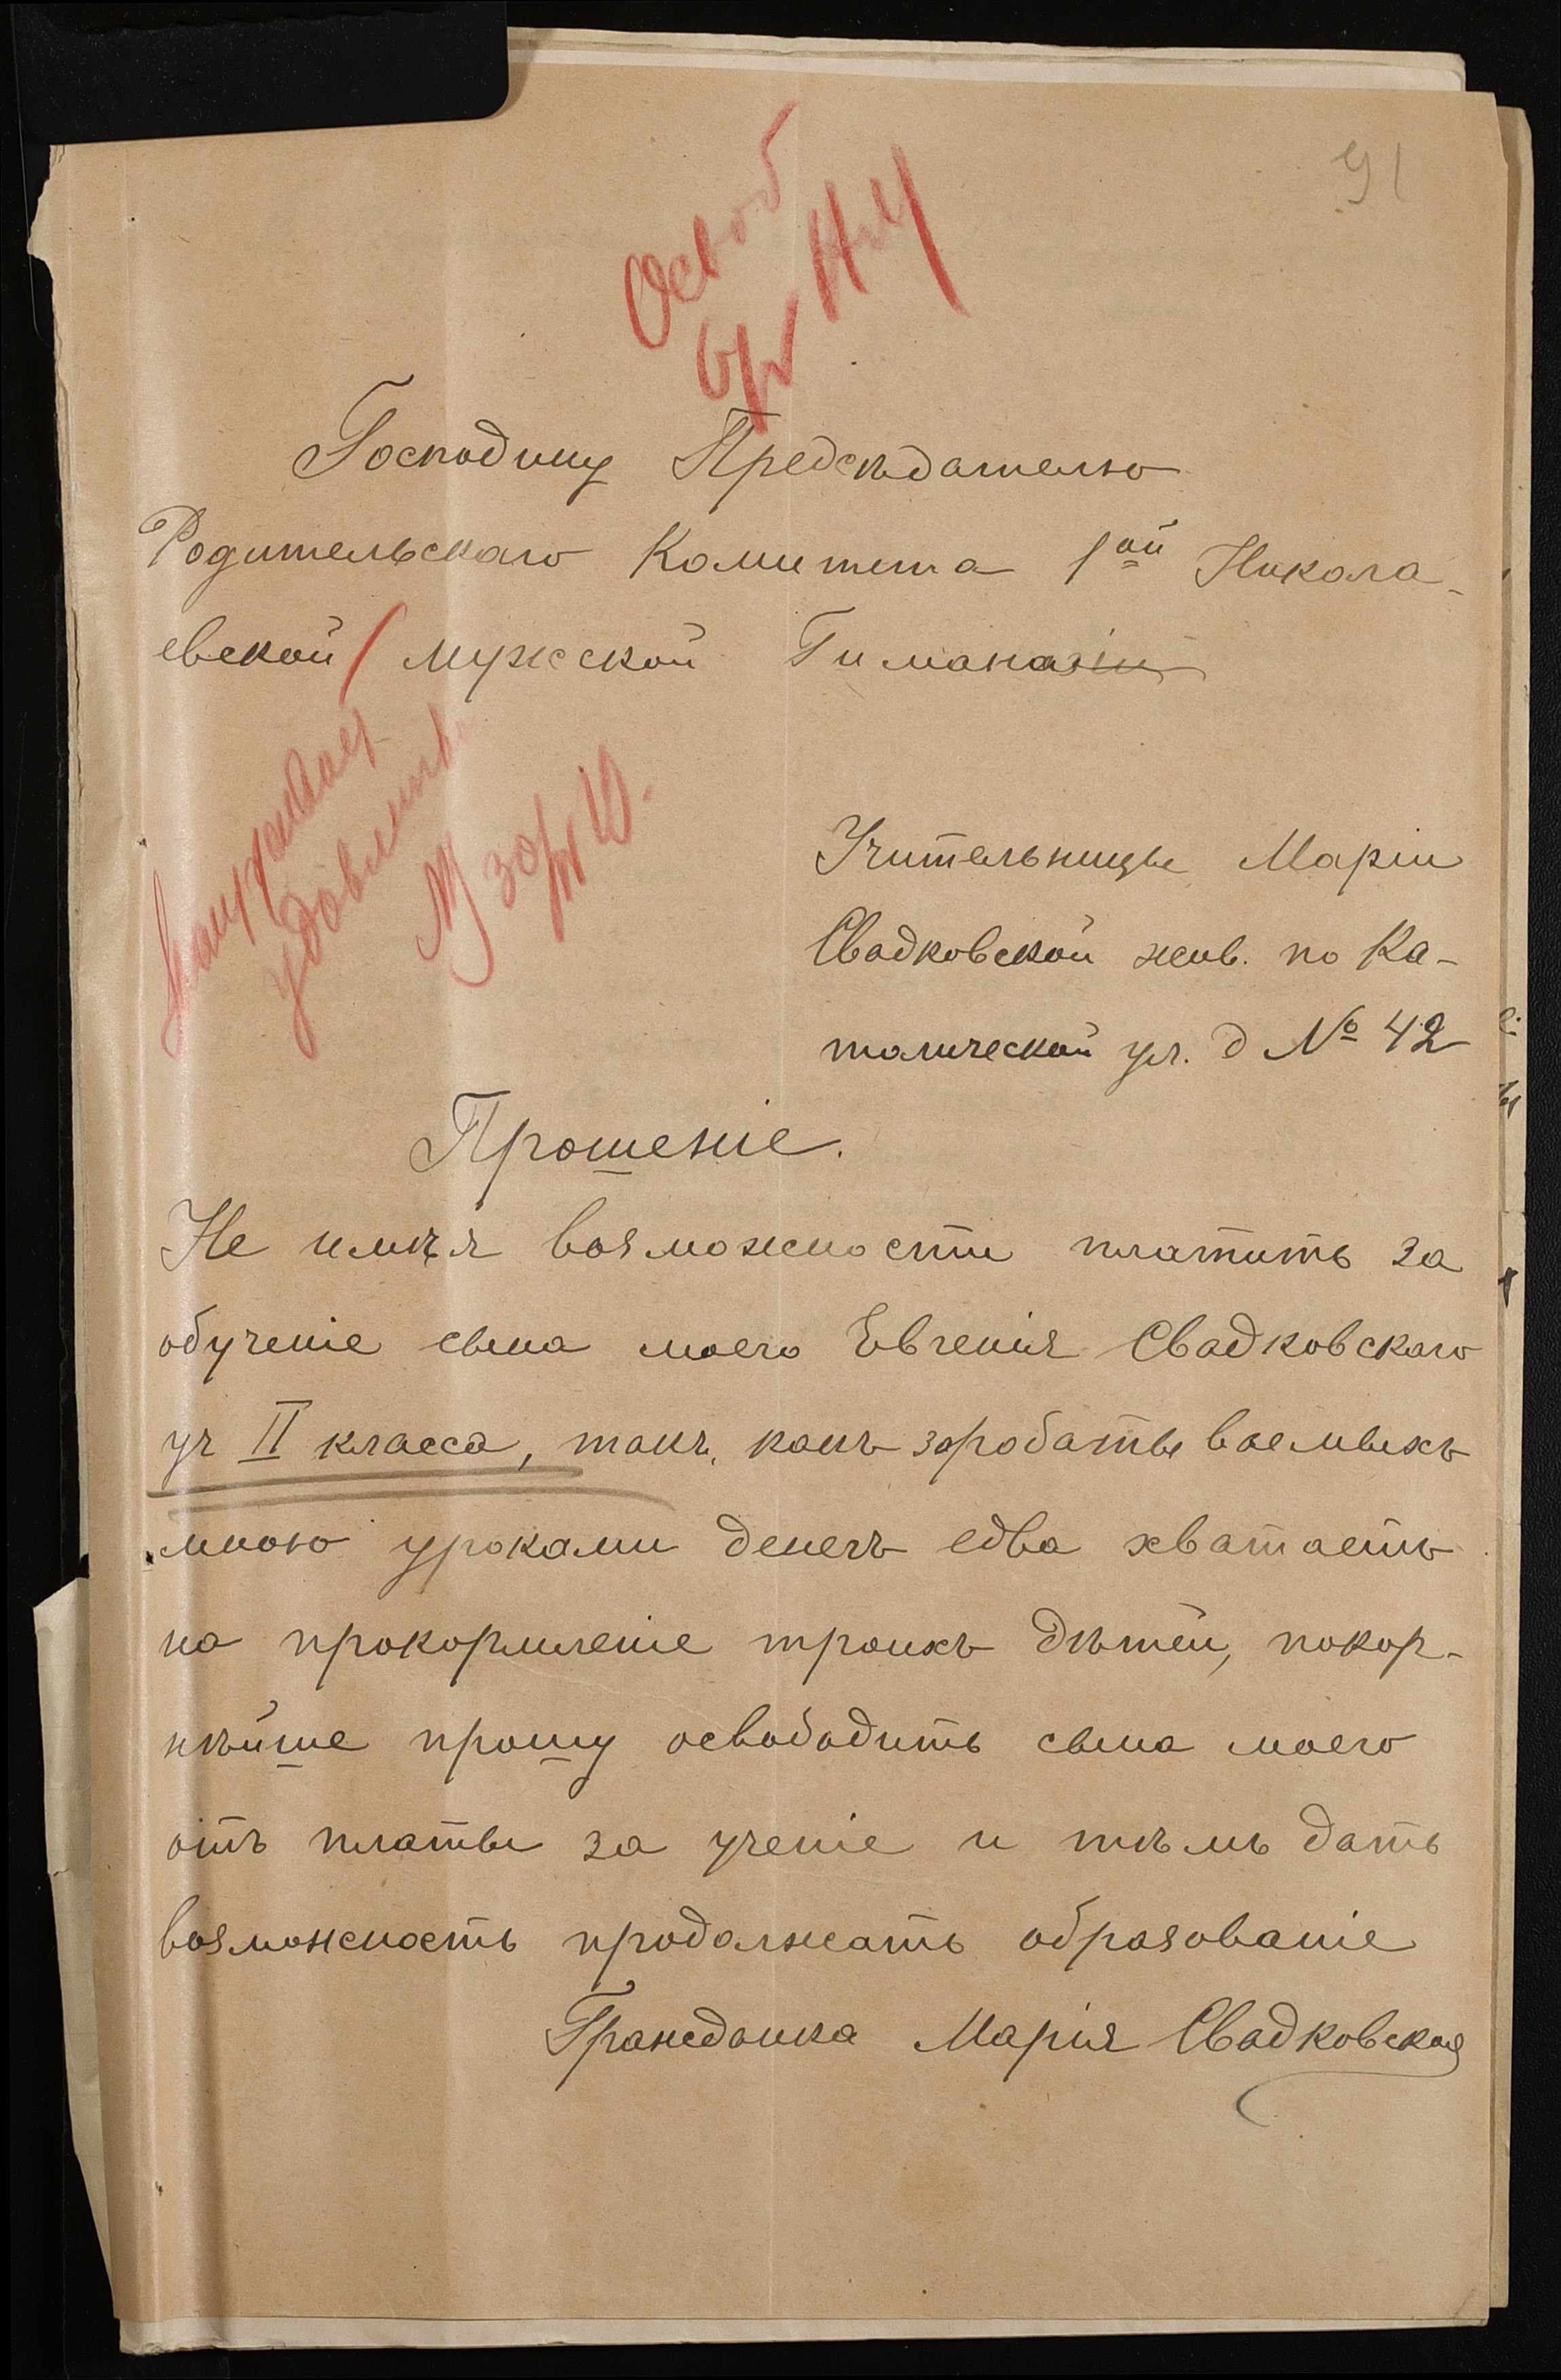 91
Освоб
Господину Предсѣдателю
Родительскаго Комитета 1ой Никола-
евской мужской Гиманазіи
удовлетв
Учительницы Маріи
Свадковской жив. по Ка-
толической ул. д № 42
Прошеніе.
Не имѣя возможности платить за
обученіе сына моего Евгенія Свадковскаго
уч II класса, такъ, какъ заробатываемыхъ
мною уроками денегъ едва хватаетъ
на прокормленіе троихъ дѣтей, покор-
нѣйше прошу освободить сына моего
отъ платы за ученіе и тѣмъ дать
возможность продолжать образованіе
Гражданка Марія Свадковская